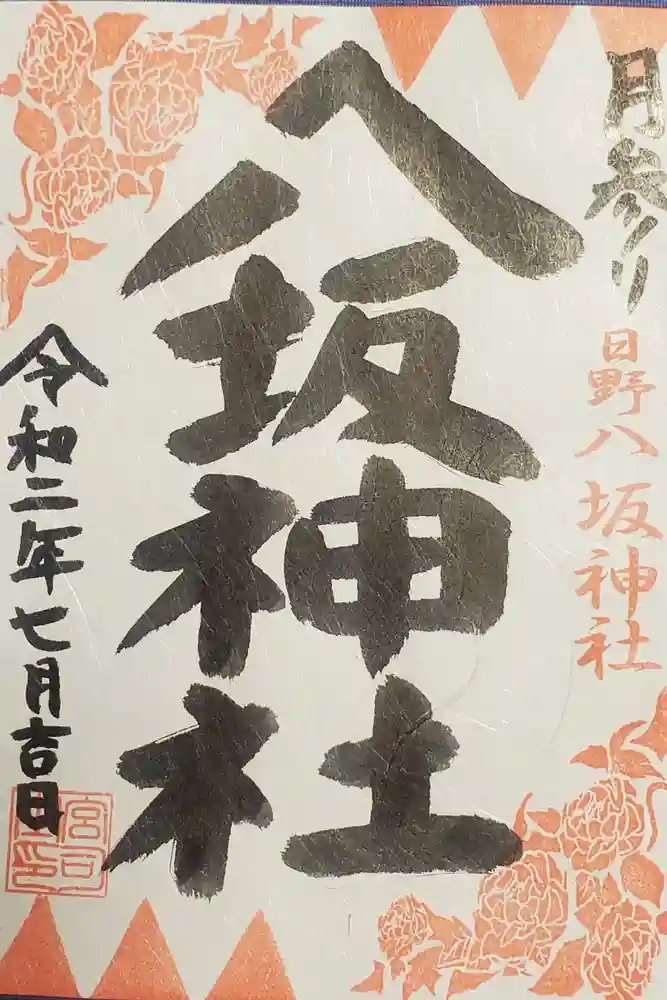 月参り
日野八坂神社
八坂神社
令和二年七月吉日
宮司